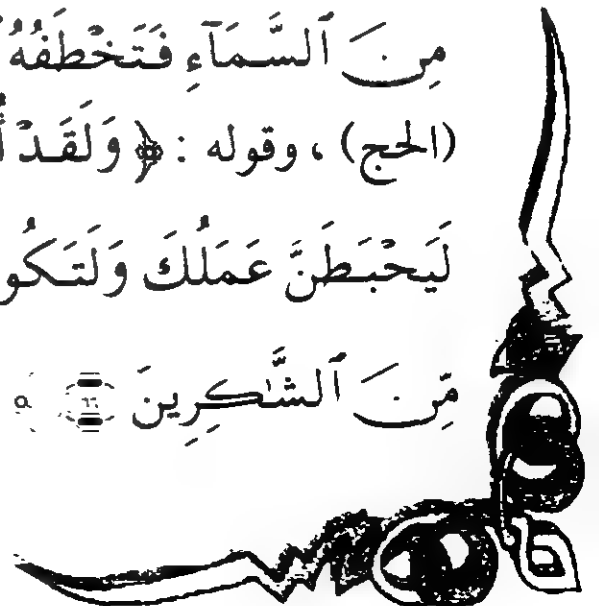 مِنَ ٱلسَّمَآءِ فَتَخْطَفُهُ
(الحج) ، وقوله : ﴿ وَلَقَدْ
لَيَحْبَطَنَّ عَمَلُكَ وَلَتَكُو
مِّنَ ٱلشَّـٰكِرِينَ ٦٦